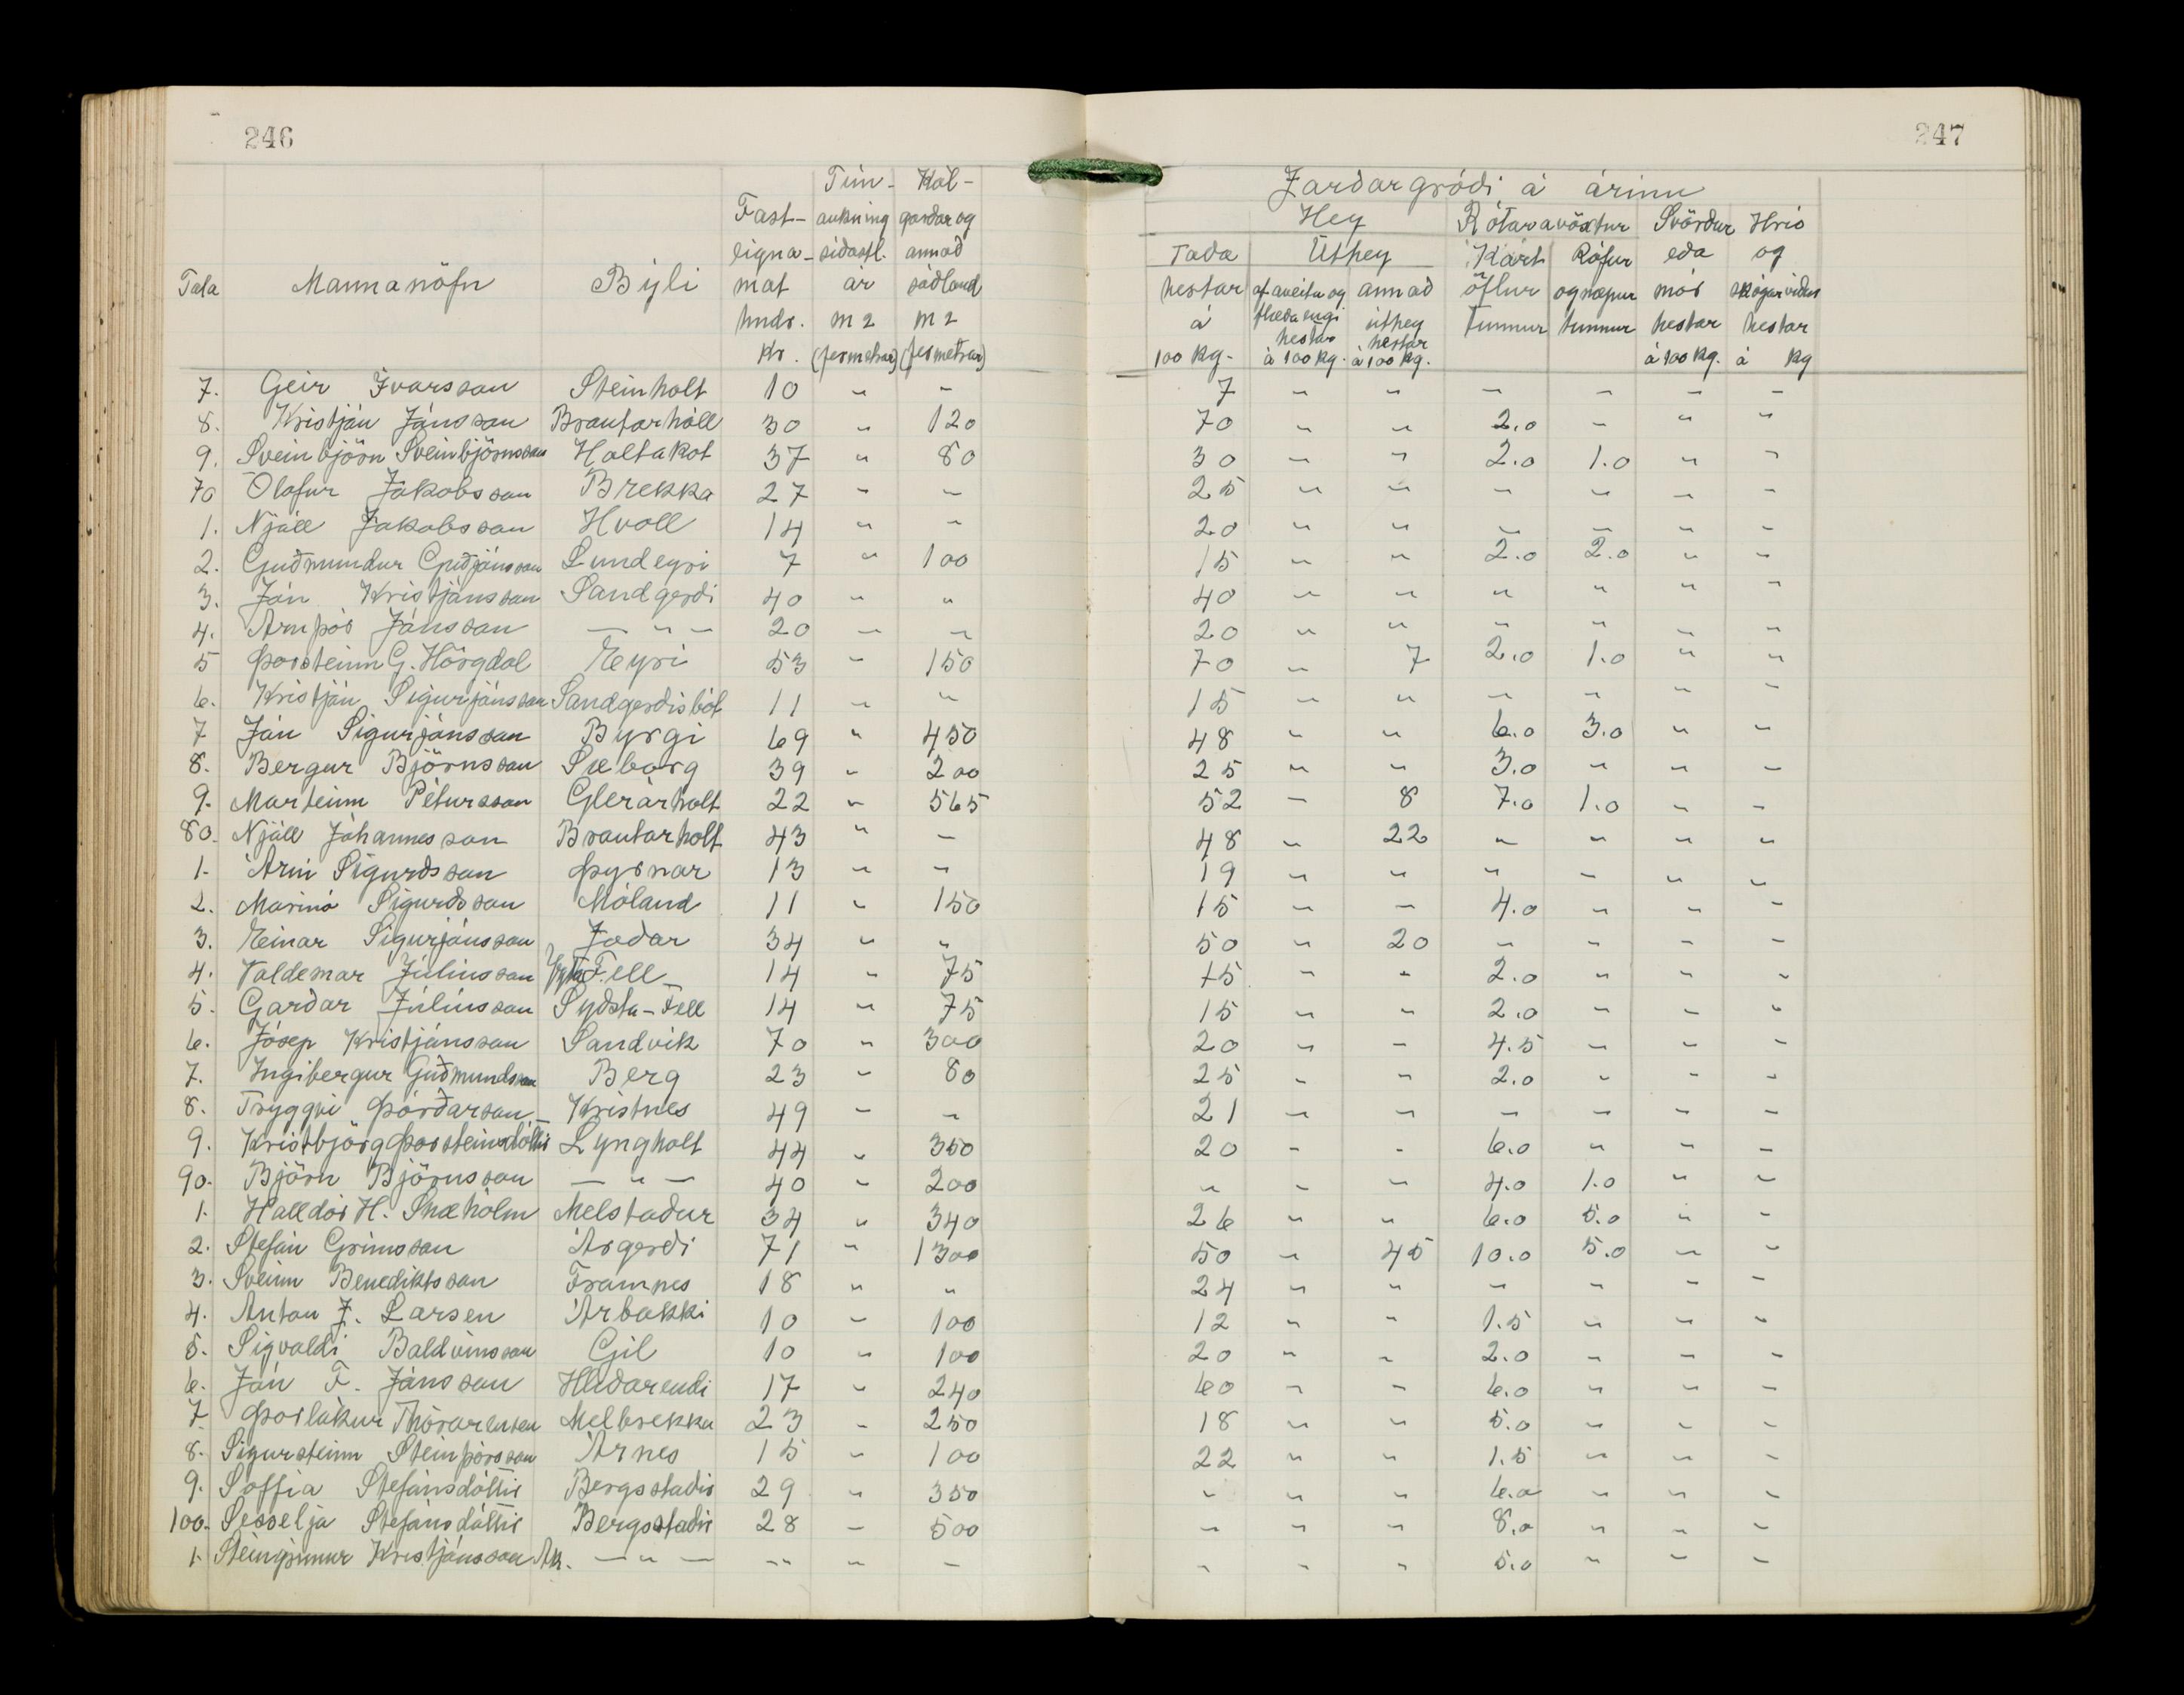 246
247
Tala Mannanöfn Býli Fast-eigna-mat hndr. kr. Tún-aukning síðastl. ár m2 (fermetrar) Kál-garðar og annað sáðland m2 (fermetrar)
Jarðargróði á árinu
Hey Rótarávöxtur Svörður eða mór hestar á 100 kg. Hrís og skógarviður hestar á kg
Taða hestar á 100 kg- Úthey Kart öflur Tunnur Rófur og næpur tunnur
af áveitu og flæðiengi hestar á 100 kg. annað úthey hestar á 100 kg.
7. Geir Ívarsson Steinholt 10 " - 7 " " - - - -
8. Kristján Jónsson Brautarhóll 30 " 120 70 " " 2.0 - " "
9. Sveinbjörn Sveinbjörnsson Holtakot 37 " 80 30 - " 2.0 1.0 " "
70 Ólafur Jakobsson Brekka 27 - - 25 " " - " - -
1. Njáll Jakobsson Hvoll 14 " - 20 " " - - " -
2. Guðmundur Guðjónsson Lundeyri 7 " 100 15 - " 2.0 2.0 " -
3. Jón Kristjánsson Sandgerði 40 " " 40 - " " " " "
4. Arnþór Jónsson — " — 20 - - 20 " " - " - "
5 Þorsteinn G. Hörgdal Eyri 53 - 150 70 - 7 2.0 1.0 " "
6. Kristján Sigurjónsson Sandgerðisbót 11 - " 15 - " - - " -
7 Jón Sigurjónsson Byrgi 69 " 450 48 " " 6.0 3.0 " -
8. Bergur Björnsson Sæborg 39 - 200 25 " " 3.0 " " -
9. Marteinn Pétursson Glerárholt 22 - 565 52 - 8 7.0 1.0 - -
80. Njáll Jóhannesson Brautarholt 43 " - 48 - 22 - " " "
1. Árni Sigurðsson Þyrnar 13 " - 19 " " " - " "
2. Marinó Sigurðsson Móland 11 " 150 15 " - 4.0 " " -
3. Einar Sigurjónsson Jaðar 34 " " 50 " 20 - " - -
4. Valdemar Júlíusson Fell 14 " 75 15 - " 2.0 " " "
5. Garðar Júlíusson Syðsta-Fell 14 " 75 15 " " 2.0 - - "
6. Jósep Kristjánsson Sandvík 70 " 300 20 " - 4.5 - " -
7. Ingibergur Guðmundsson Berg 23 - 80 25 " " 2.0 - - -
8. Tryggvi Þórðarson Kristnes 49 - - 21 - " - - - -
9. Kristbjörg Þorsteinsdóttir Lyngholt 44 " 350 20 - - 6.0 " " -
90. Björn Björnsson — " — 40 " 200 " " " 4.0 1.0 " "
1. Halldór H. Snæhólm Melstaður 34 " 340 26 " " 6.0 5.0 " -
2. Stefán Grímsson Árgerði 71 " 1300 50 " 45 10.0 5.0 - "
3. Sveinn Benediktsson Framnes 18 " " 24 " " " " - -
4. Anton J. Larsen Árbakki 10 - 100 12 " " 1.5 - " "
5. Sigvaldi Baldvinsson Gil 10 " 100 20 " - 2.0 - - -
6. Jón F. Jónsson Hlíðarendi 17 " 240 60 - - 6.0 " " -
7. Þorlákur Thórarensen Melbrekka 23 - 250 18 " " 5.0 " - -
8. Sigursteinn Steinþórsson Árnes 15 - 100 22 " " 1.5 - " -
9. Soffía Stefánsdóttir Bergsstaðir 29 " 350 " " " 6.0 " " -
100. Sesselja Stefánsdóttir Bergsstaðir 28 - 500 - " " 8.0 " - -
1. Steingrímur Kristjánsson Ak. — " — " " - - - - 5.0 " - -